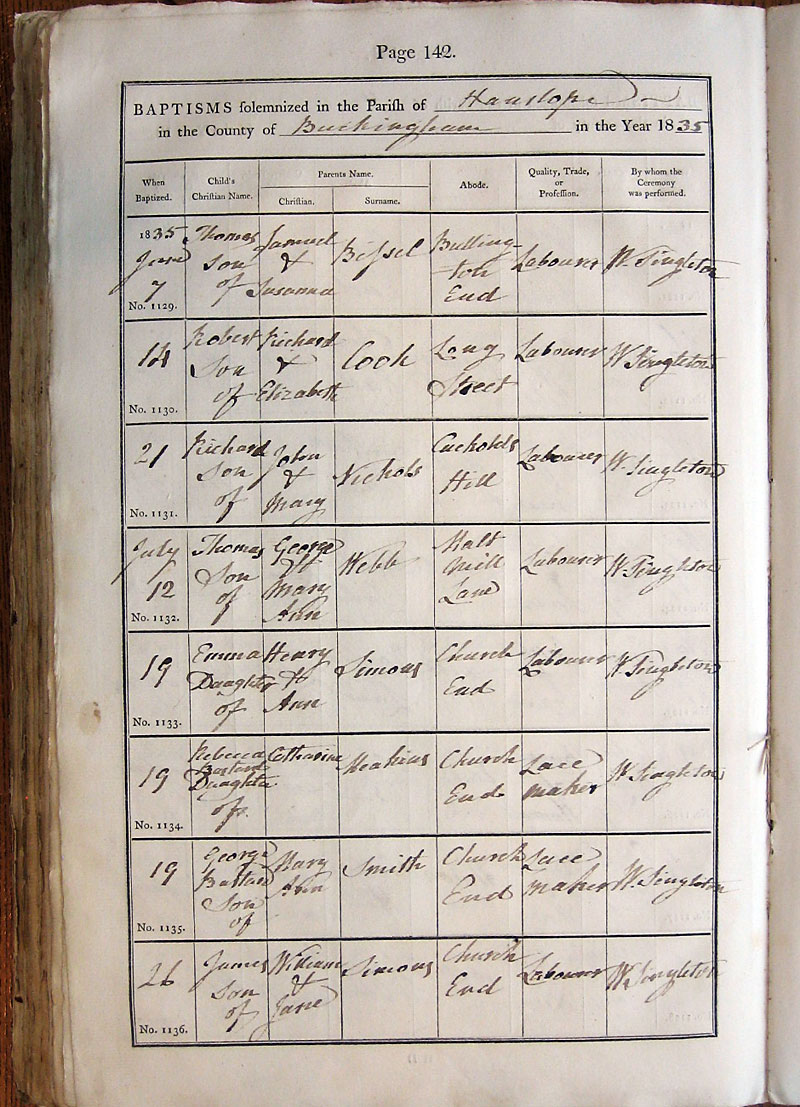 Page 142.
BAPTISMS solemnized in the Parish of Hanslope
in the County of Buckingham in the Year 1835
When Baptized.
Child's Christian Name.
Parents Name.
Christian.
Surname.
Abode.
Quality, Trade, or Profession.
By whom the Ceremony was performed.
1835
June
7
No. 1129.
Thomas
Son
of
Samuel
&
Susanna
Bissel
Bulling-
ton
End
Labourer
W. Singleton
14
No. 1130.
Robert
Son
of
Richard
&
Elizabeth
Cook
Long
Street
Labourer
W. Singleton
21
No. 1131.
Richard
Son
of
John
&
Mary
Nichols
Cuckolds
Hill
Labourer
W. Singleton
July
12
No. 1132.
Thomas
Son
of
George
&
Mary
Ann
Webb
Malt
Mill
Lane
Labourer
W. Singleton
19
No. 1133.
Emma
Daughter
of
Henry
&
Ann
Simons
Church
End
Labourer
W. Singleton
19
No. 1134.
Rebecca
Bastard
Daughter
of
Catharine
Meakins
Church
End
Lace
maker
W. Singleton
19
No. 1135.
George
Bastard
Son
of
Mary
Ann
Smith
Church
End
Lace
maker
W. Singleton
26
No. 1136.
James
Son
of
William
&
Jane
Simons
Church
End
Labourer
W. Singleton